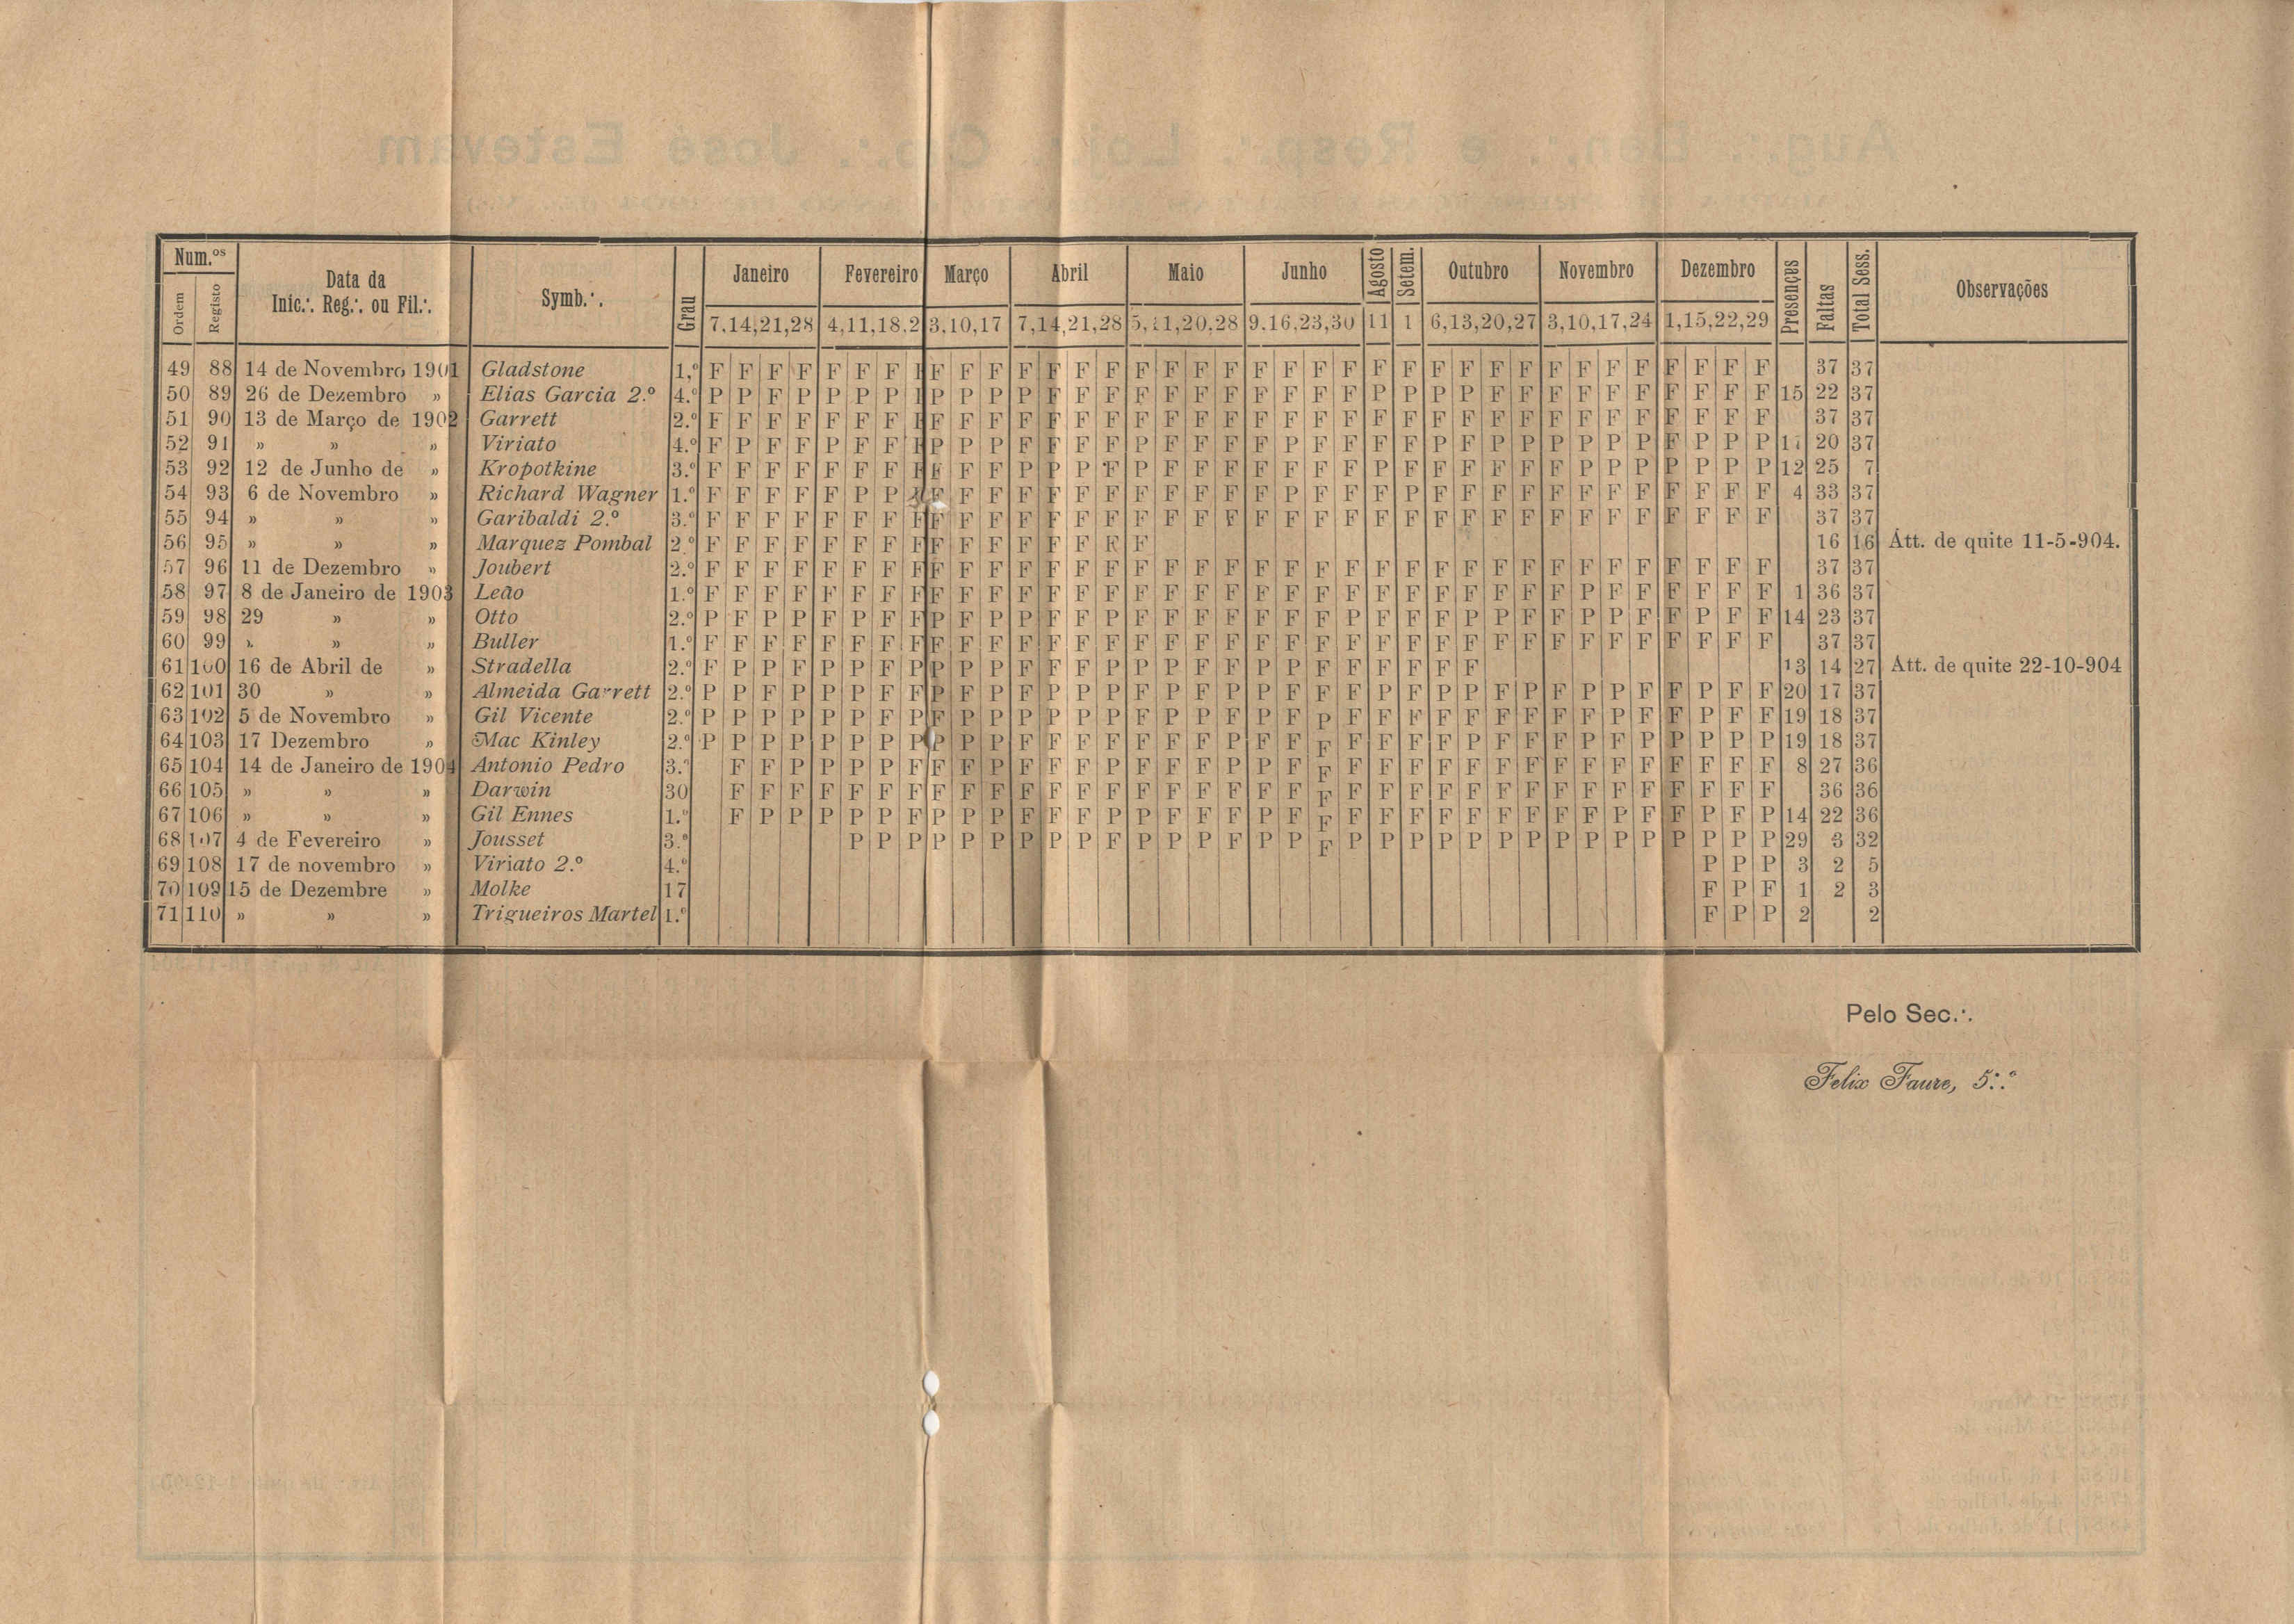 Num.os
Ordem
Registo
Data da
Inic.·. Reg.·. ou Fil.·.
Symb.·.
Grau
Janeiro
Fevereiro
Março
Abril
Maio
Junho
Agosto
Setem.
Outubro
Novembro
Dezembro
Presenças
Faltas
Total Sess.
Observações
7,14,21,28 4,11,18,2 3,10,17 7,14,21,28 5,11,20,28 9,16,23,30 11 1 6,13,20,27 3,10,17,24 1,15,22,29
49 88 14 de Novembro 1901 Gladstone 1.º F F F F F F F F F F F F F F F F F F F F F F F F F F F F F F F F F F F 37 37
50 89 26 de Dezembro » Elias Garcia 2.º 4.º P P F P P P P P P P P F F F F F F F F F F F P P P P F F F F F F F F F F 15 22 37
51 90 13 de Março de 1902 Garrett 2.º F F F F F F F F F F F F F F F F F F F F F F F F F F F F F F F F F F F 37 37
52 91 » » » Viriato 4.º F P F F P F F P P P F F F F P F F F F P F F F F P F P P P P P P F P P P 20 37
53 92 12 de Junho de » Kropotkine 3.º F F F F F F F F F F P P P F P F F F F F F F P F F F F F F P P P P P P P 12 25 7
54 93 6 de Novembro » Richard Wagner 1.º F F F F F P P F F F F F F F F F F F F P F F F P F F F F F F F F F F F F 4 33 37
55 94 » » » Garibaldi 2.º 3.º F F F F F F F F F F F F F F F F F F F F F F F F F F F F F F F F F F F F F 37 37
56 95 » » » Marquez Pombal 2.º F F F F F F F F F F F F F F F F 16 16 Att. de quite 11-5-904.
57 96 11 de Dezembro » Joubert 2.º F F F F F F F F F F F F F F F F F F F F F F F F F F F F F F F F F F F F F 37 37
58 97 8 de Janeiro de 1903 Leão 1.º F F F F F F F F F F F F F F F F F F F F F F F F F F F F F P F F F F F F F 1 36 37
59 98 29 » » Otto 2.º P F F F F P F F P F P P F F P F F F F F F F P F F F P P F F P P F F P F F 14 23 37
60 99 » » » Buller 1.º F F F F F F F F F F F F F F F F F F F F F F F F F F F F F F F F F F F F F 37 37
61 100 16 de Abril de » Stradella 2.º F P P F P P F P P P P F F F P P P P F P P F F F F F F 13 14 27 Att. de quite 22-10-904
62 101 30 » » Almeida Garrett 2.º P P F P P P F F P F P P P F P F P P F P F F F P F P P F P F P P F F P F F 20 17 37
63 102 5 de Novembro » Gil Vicente 2.º P P P P P P F P F P P P P P P F P P F P F P F F F F F F F F F P F F P F F 19 18 37
64 103 17 Dezembro » Mac Kinley 2.º P P P P P P P P P P P F F F F F F F P F F F F F F F P F F F P F P P P P P 19 18 37
65 104 14 de Janeiro de 1904 Antonio Pedro 3.º F F P P P P F F F P F F F P F F F P P F F F F F F F F F F F F F F F F F 8 27 36
66 105 » » » Darwin 30 F F F F F F F F F F F F F F F F F F F F F F F F F F F F F F F F F F F F 36 36
67 106 » » » Gil Ennes 1.º F P P P P P F P P P F F F P P F F F P F F F F F F F F F F F P F F P F P 14 22 36
68 107 4 de Fevereiro » Jousset 3.º P P P P P P P P P F P P P F P P F P P P P P P P P P P P P P P P 29 3 32
69 108 17 de novembro » Viriato 2.º 4.º P P P 3 2 5
70 109 15 de Dezembre » Molke 17 F P F 1 2 3
71 110 » » » Trigueiros Martel 1.º F P P 2 2
Pelo Sec.·.
Felix Faure, 5.·.º